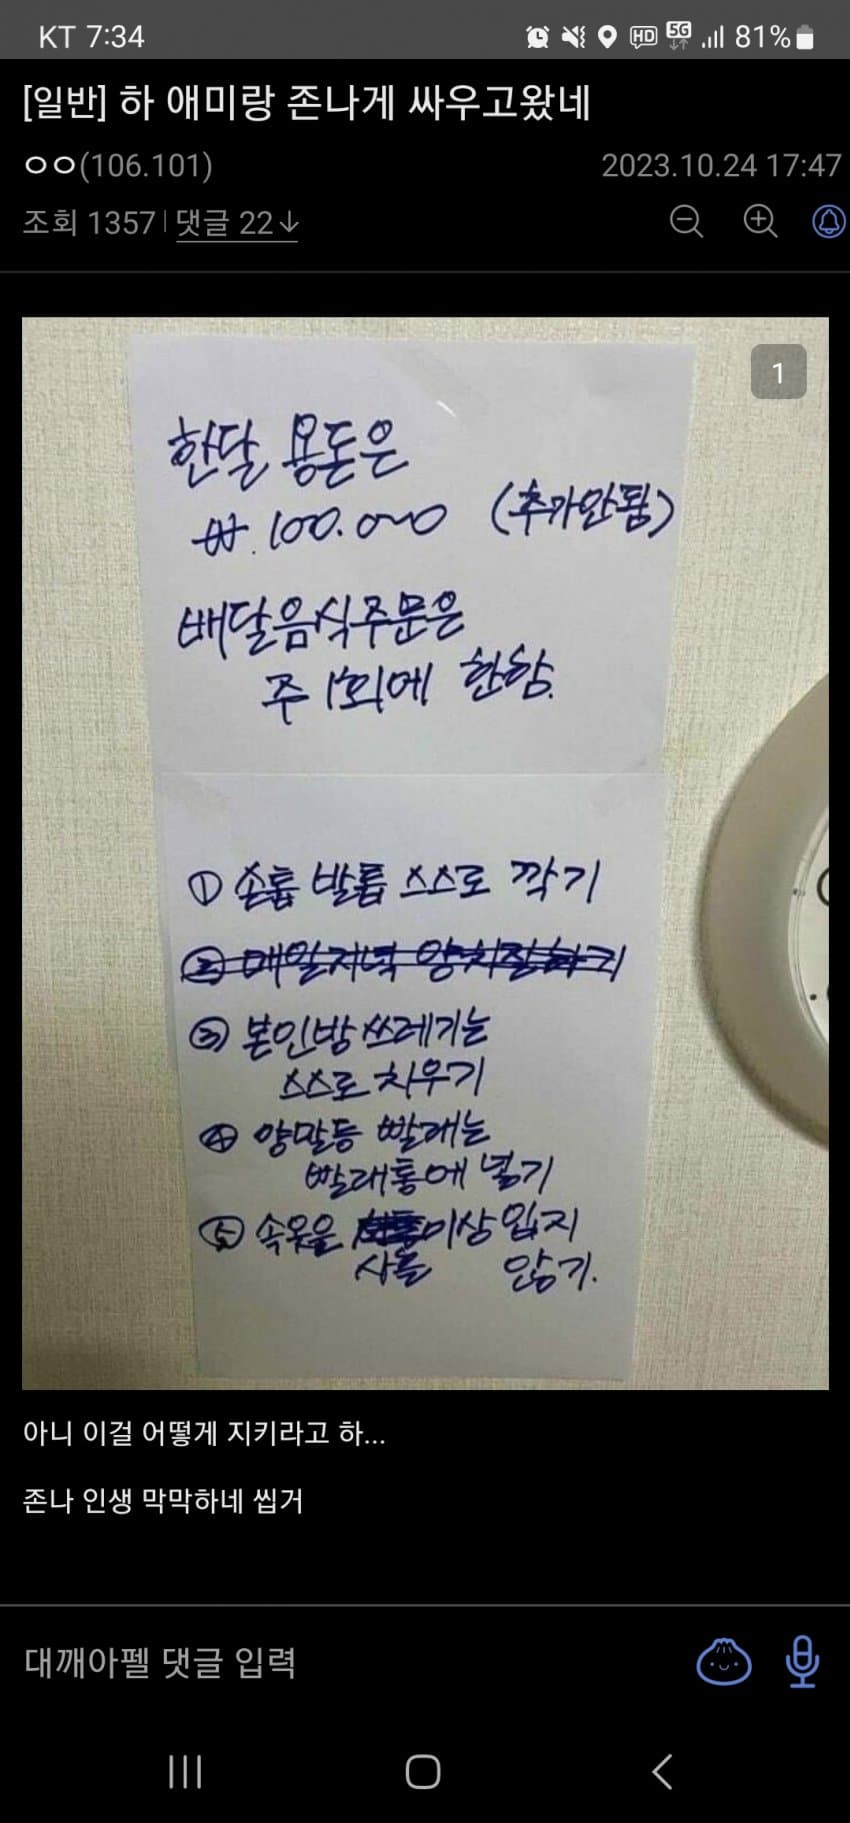 KT 7:34
HD 5G 81%
[일반] 하 애미랑 존나게 싸우고왔네
ㅇㅇ(106.101)
2023.10.24 17:47
조회 1357 | 댓글 22↓
1
한달 용돈은
₩.100.000 (추가안됨)
배달음식주문은
주 1회에 한함.
① 손톱 발톱 스스로 깍기
② 매일저녁 양치질하기
③ 본인방 쓰레기는
스스로 치우기
④ 양말등 빨래는
빨래통에 넣기
⑤ 속옷을 이상 입지
사흘 않기.
아니 이걸 어떻게 지키라고 하...
존나 인생 막막하네 씹거
대깨아펠 댓글 입력